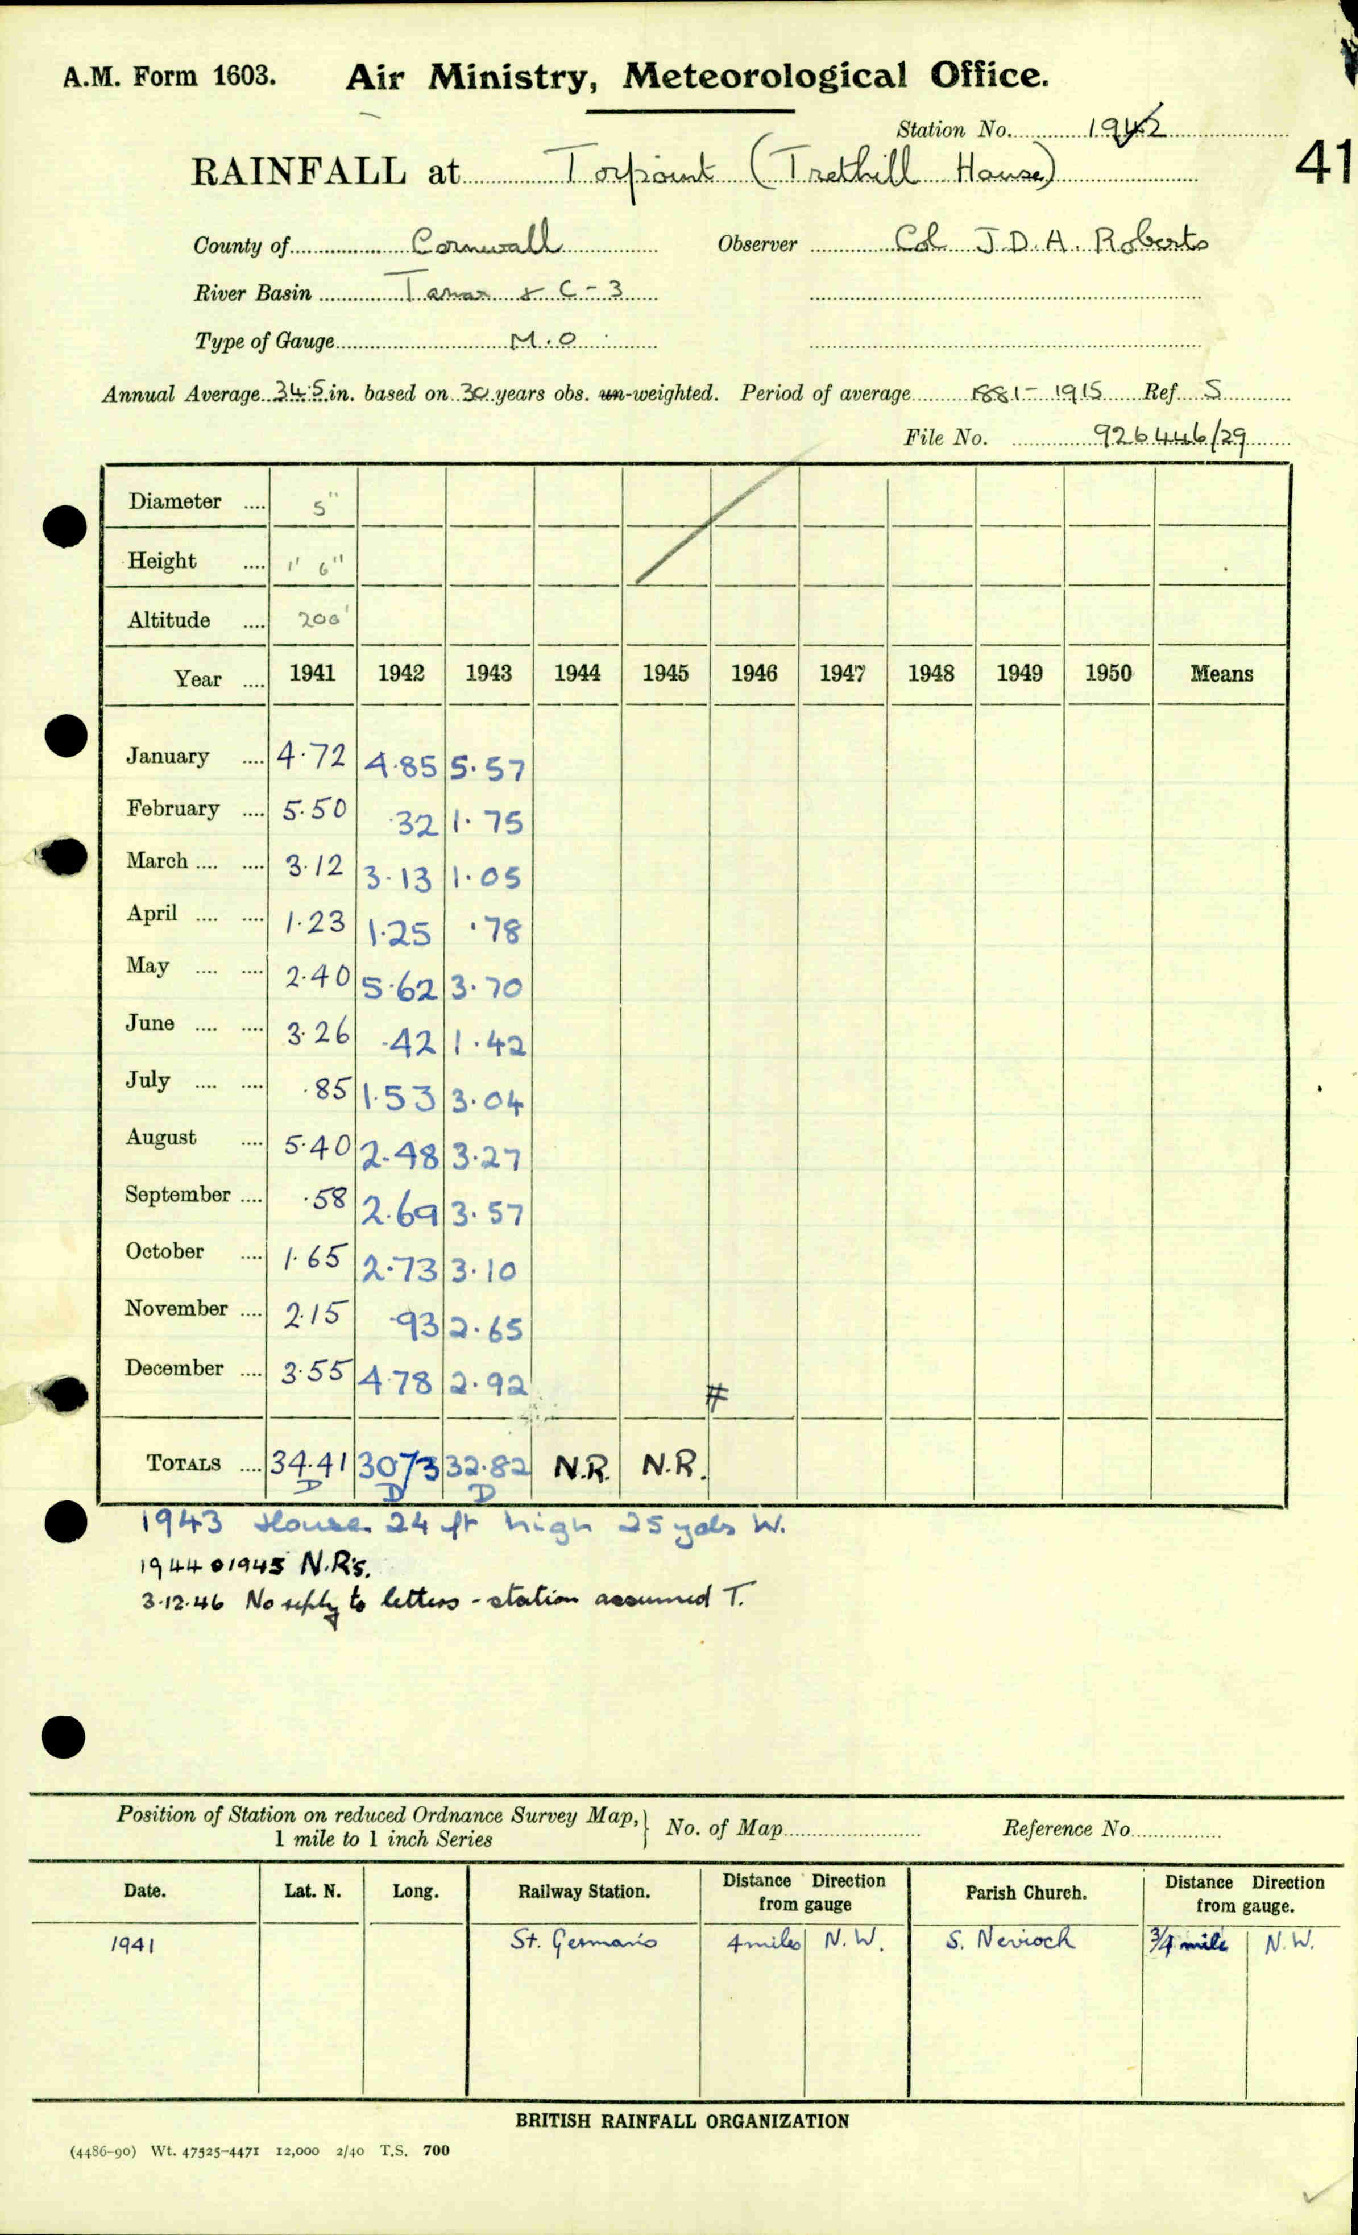 A.M. Form 1603. Air Ministry, Meteorological Office.
Station No. 1942
41
RAINFALL at Torpoint (Trethill House)
County of Cornwall Observer Col J.D.A. Roberts
River Basin Tamar & C-3
Type of Gauge M.O
Annual Average 34.5 in. based on 30 years obs. un-weighted. Period of average 1881-1915 Ref. S
File No. 926446/29
Diameter .... 5"
Height .... 1' 6"
Altitude .... 200'
Year .... 1941 1942 1943 1944 1945 1946 1947 1948 1949 1950 Means
January .... 4.72 4.85 5.57
February .... 5.50 .32 1.75
March .... .... 3.12 3.13 1.05
April .... .... 1.23 1.25 .78
May .... .... 2.40 5.62 3.70
June .... .... 3.26 .42 1.42
July .... .... .85 1.53 3.04
August .... 5.40 2.48 3.27
September .... .58 2.69 3.57
October .... 1.65 2.73 3.10
November .... 2.15 .93 2.65
December .... 3.55 4.78 2.92 #
TOTALS .... 34.41 30.73 32.82 N.R. N.R.
D D D
1943 House 24 ft high 25 yds W.
1944 & 1945 N.R's.
3.12.46 No reply to letters - station assumed T.
Position of Station on reduced Ordnance Survey Map, 1 mile to 1 inch Series } No. of Map Reference No
Date. Lat. N. Long. Railway Station. Distance Direction from gauge Parish Church. Distance Direction from gauge.
1941 St. Germans 4 miles N.W. S. Nevioch 3/4 mile N.W.
BRITISH RAINFALL ORGANIZATION
(4486-90) Wt. 47525-4471 12,000 2/40 T.S. 700